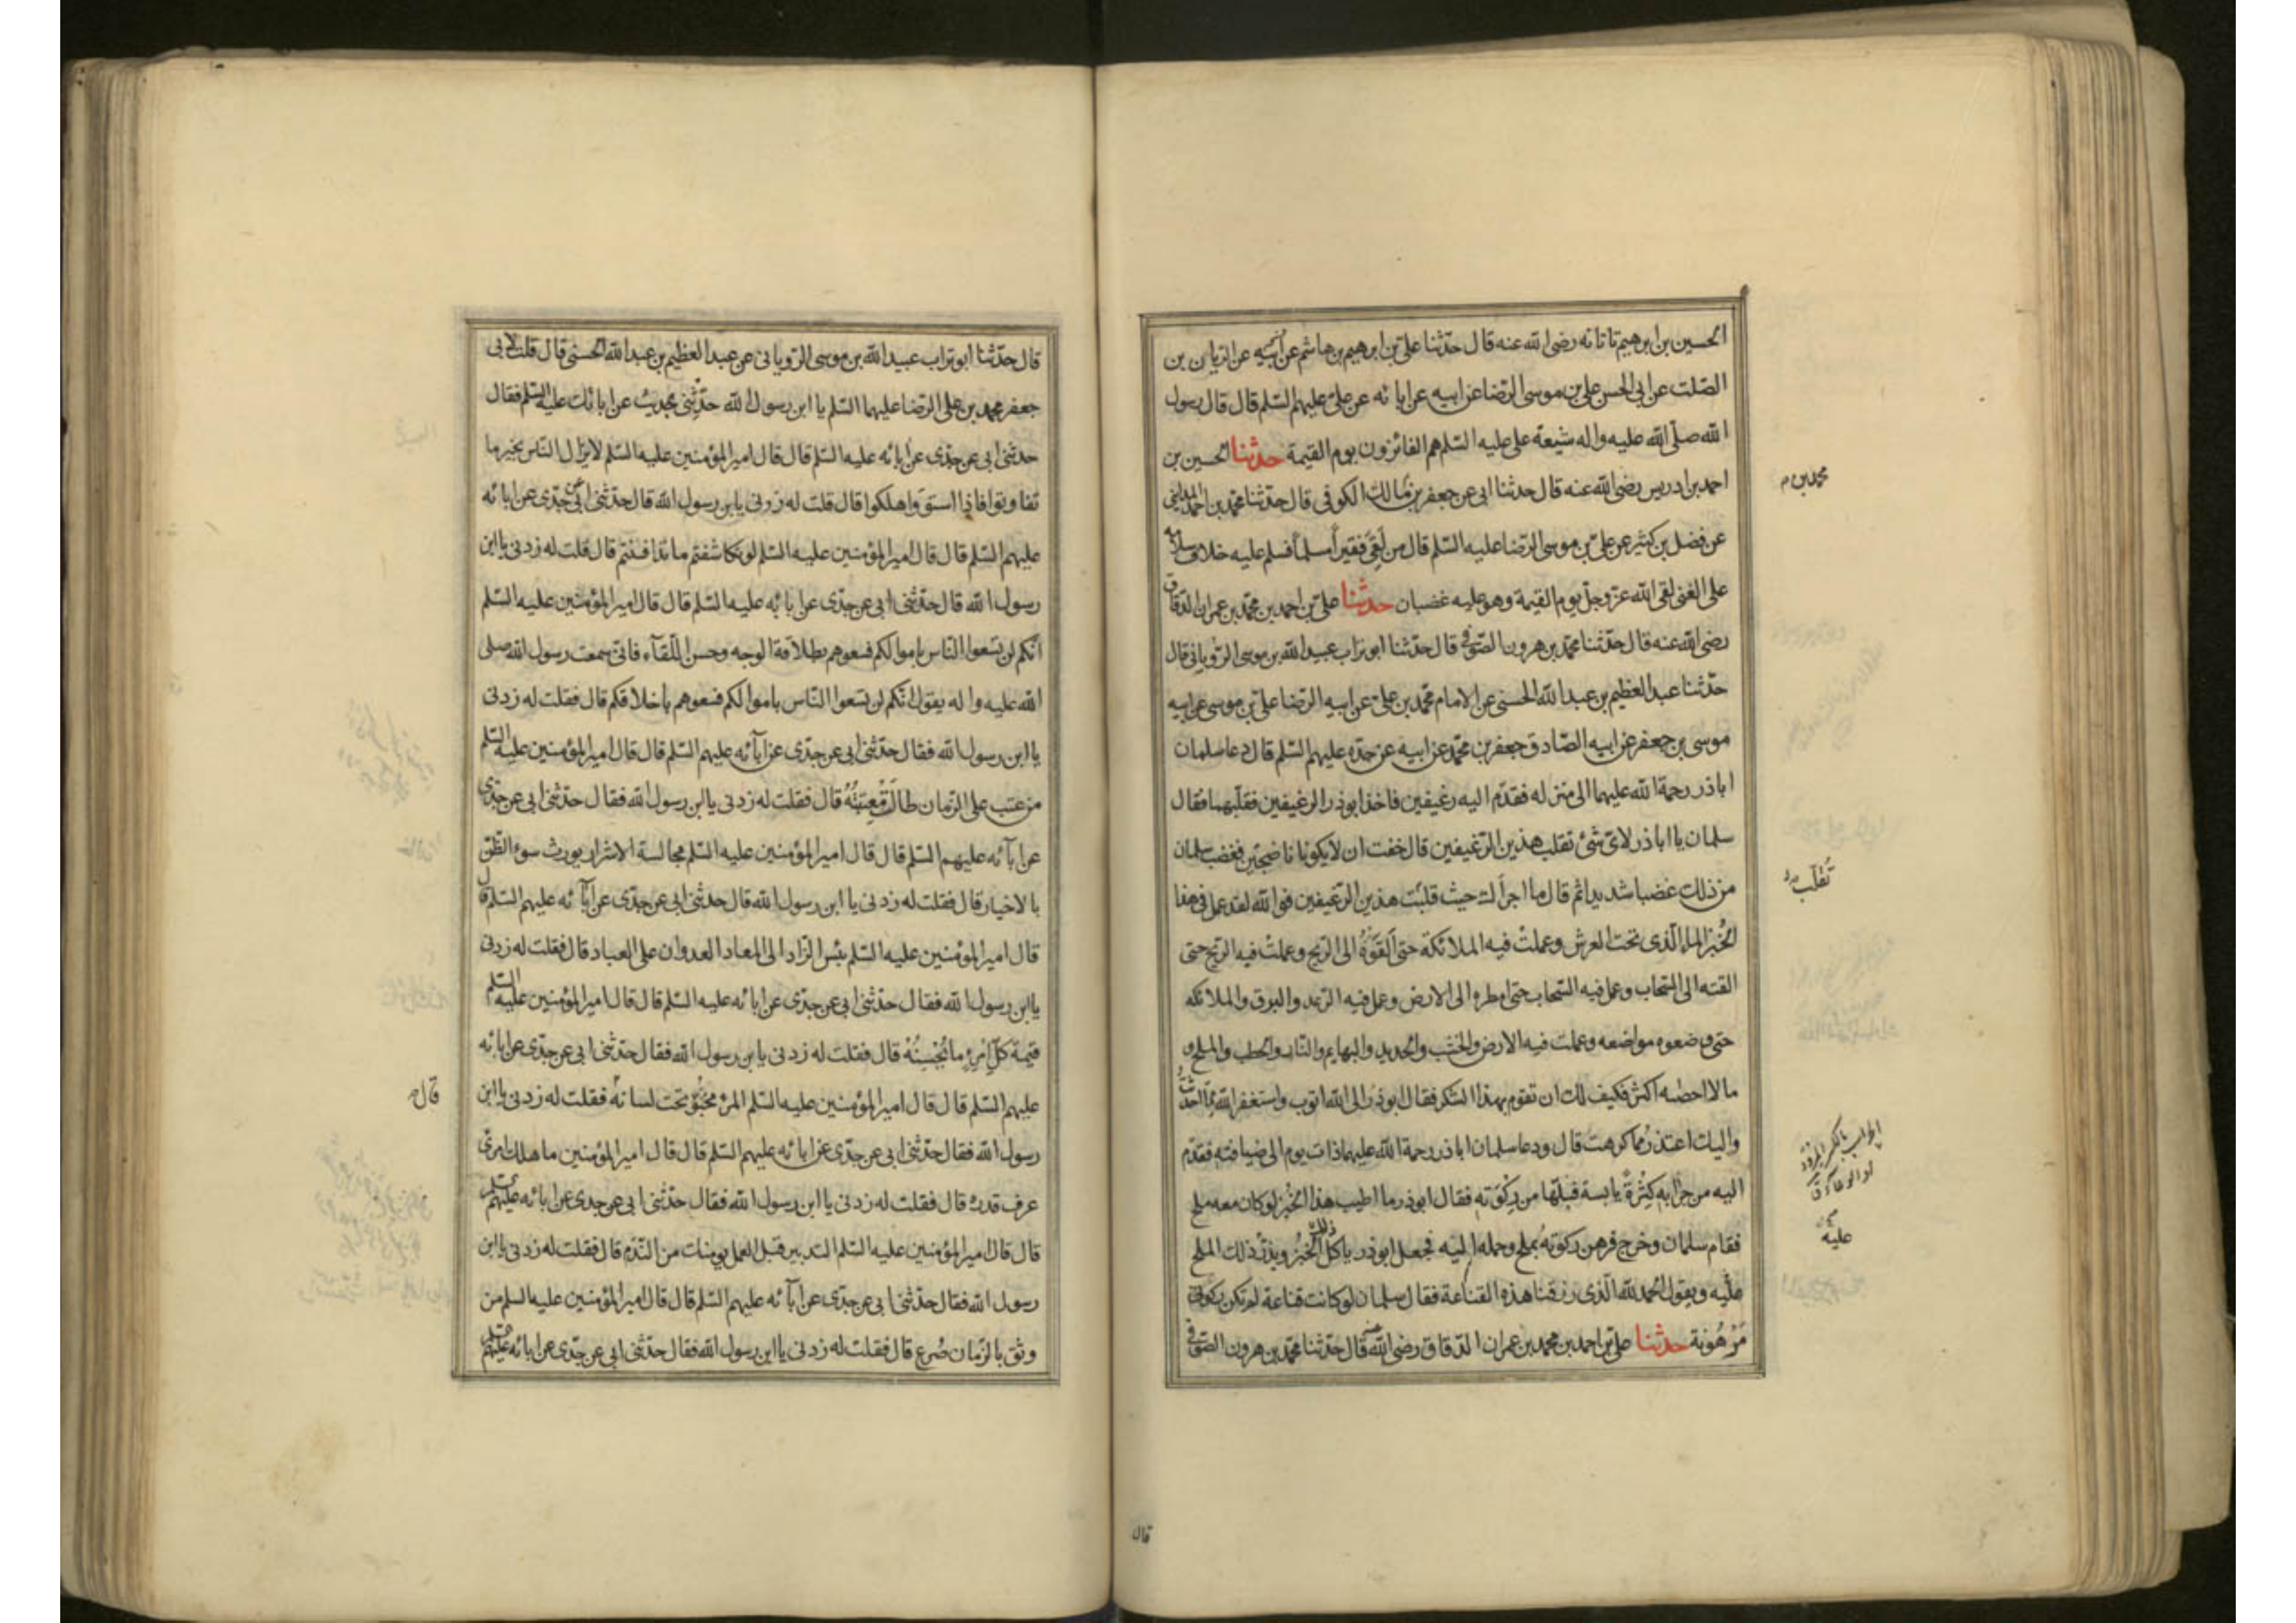 الحسين بن ابرهيم تاتانه رضى الله عنه قال حدثنا على بن ابرهيم بن هاشم عن ابيه عن الريان بن
الصلت عن ابى الحسن على بن موسى الرضا عن ابيه عن ابائه عن على عليهم السلم قال قال رسول
الله صلى الله عليه واله شيعة على عليه السلم هم الفائزون يوم القيمة حدثنا الحسين بن
احمد بن ادريس رضى الله عنه قال حدثنا ابى عن جعفر بن مالك الكوفى قال حدثنا محمد بن احمد المداينى
محمد بن م
عن فضل بن كثير عن على بن موسى الرضا عليه السلم قال من لقى فقيرا مسلما فسلم عليه خلاف سلامه
على الغنى لقى الله عز وجل يوم القيمة وهو عليه غضبان حدثنا على بن احمد بن محمد بن عمران الدقاق
رضى الله عنه قال حدثنا محمد بن هرون الصوفى قال حدثنا ابو تراب عبيد الله بن موسى الرويانى قال
حدثنا عبد العظيم بن عبد الله الحسنى عن الامام محمد بن على عن ابيه الرضا على بن موسى عن ابيه
موسى بن جعفر عن ابيه الصادق جعفر بن محمد عن ابيه عن جده عليهم السلم قال دعا سلمان
اباذر رحمة الله عليهما الى منزله فقدم اليه رغيفين فاخذ ابوذر الرغيفين فقلبهما فقال
سلمان يا اباذر لاى شئ تقلب هذين الرغيفين قال خفت ان لا يكونا ناضجتين فغضب سلمان
تقلب
من ذلك غضبا شديدا ثم قال ما اجرأك حيث قلبت هذين الرغيفين فو الله لقد عمل فى هذا
الخبز الماء الذى تحت العرش وعملت فيه الملائكة حتى القوه الى الريح وعملت فيه الريح حتى
القته الى السحاب وعمل فيه السحاب حتى امطره الى الارض وعمل فيه الرعد والبرق والملائكه
حتى وضعوه مواضعه وعملت فيه الارض والخشب والحديد والبهايم والنار والحطب والملح و
ما لا احصيه اكثر فكيف لك ان تقوم بهذا الشكر فقال ابوذر الى الله اتوب واستغفر الله مما احدثت
واليك اعتذر مما كرهت قال ودعا سلمان اباذر رحمة الله عليهما ذات يوم الى ضيافته فقدم
اليه من جرابه كسرة يابسة فبلها من ركوته فقال ابوذر ما اطيب هذا الخبز لو كان معه ملح
فقام سلمان وخرج فرهن ركوته بملح وحمله اليه فجعل ابوذر ياكل ذلك الخبز ويذر ذلك الملح
عليه
عليه ويقول الحمد لله الذى رزقنا هذه القناعة فقال سلمان لو كانت قناعة لم تكن ركوتى
مرهونة حدثنا على بن احمد بن محمد بن عمران الدقاق رضى الله عنه قال حدثنا محمد بن هرون الصوفى
قال
قال حدثنا ابو تراب عبيد الله بن موسى الرويانى عن عبد العظيم بن عبد الله الحسنى قال قلت لابى
جعفر محمد بن على الرضا عليهما السلم يا ابن رسول الله حدثنى بحديث عن ابائك عليه السلم فقال
حدثنى ابى عن جدى عن ابائه عليه السلم قال قال امير المؤمنين عليه السلم لا يزال الناس بخير ما
تفاوتوا فاذا استووا هلكوا قال قلت له زدنى يابن رسول الله قال حدثنى ابى عن جدى عن ابائه
عليهم السلم قال قال امير المؤمنين عليه السلم لو تكاشفتم ما تدافنتم قال قلت له زدنى يا ابن
رسول الله قال حدثنى ابى عن جدى عن ابائه عليه السلم قال قال امير المؤمنين عليه السلم
انكم لن تسعوا الناس باموالكم فسعوهم بطلاقة الوجه وحسن اللقآء فانى سمعت رسول الله صلى
الله عليه واله يقول انكم لن تسعوا الناس باموالكم فسعوهم باخلاقكم قال فقلت له زدنى
يا ابن رسول الله فقال حدثنى ابى عن جدى عن اٰبائه عليهم السلم قال قال امير المؤمنين عليه السلم
من عتب على الزمان طالت معتبته قال فقلت له زدنى يابن رسول الله فقال حدثنى ابى عن جدى
عن اٰبائه عليهم السلم قال قال امير المؤمنين عليه السلم مجالسة الاشرار يورث سوء الظن
بالاخيار قال فقلت له زدنى يا ابن رسول الله قال حدثنى ابى عن جدى عن اٰبائه عليهم السلم قال
قال امير المؤمنين عليه السلم بئس الزاد الى المعاد العدوان على العباد قال فقلت له زدنى
يا ابن رسول الله فقال حدثنى ابى عن جدى عن ابائه عليه السلم قال قال امير المؤمنين عليه السلم
قيمة كل امرئ ما يحسنه قال فقلت له زدنى يابن رسول الله فقال حدثنى ابى عن جدى عن ابائه
عليهم السلم قال قال امير المؤمنين عليه السلم المرء مخبو تحت لسانه فقلت له زدنى يا ابن
قال
رسول الله فقال حدثنى ابى عن جدى عن ابائه عليهم السلم قال قال امير المؤمنين ما هلك امرئ
عرف قدره قال فقلت له زدنى يا ابن رسول الله فقال حدثنى ابى عن جدى عن ابائه عليهم السلم
قال قال امير المؤمنين عليه السلم التدبير قبل العمل يومنك من الندم قال فقلت له زدنى يا ابن
رسول الله فقال حدثنى ابى عن جدى عن اٰبائه عليهم السلم قال قال امير المؤمنين عليه السلم من
وثق بالزمان صرع قال فقلت له زدنى يا ابن رسول الله فقال حدثنى ابى عن جدى عن ابائه عليهم السلم